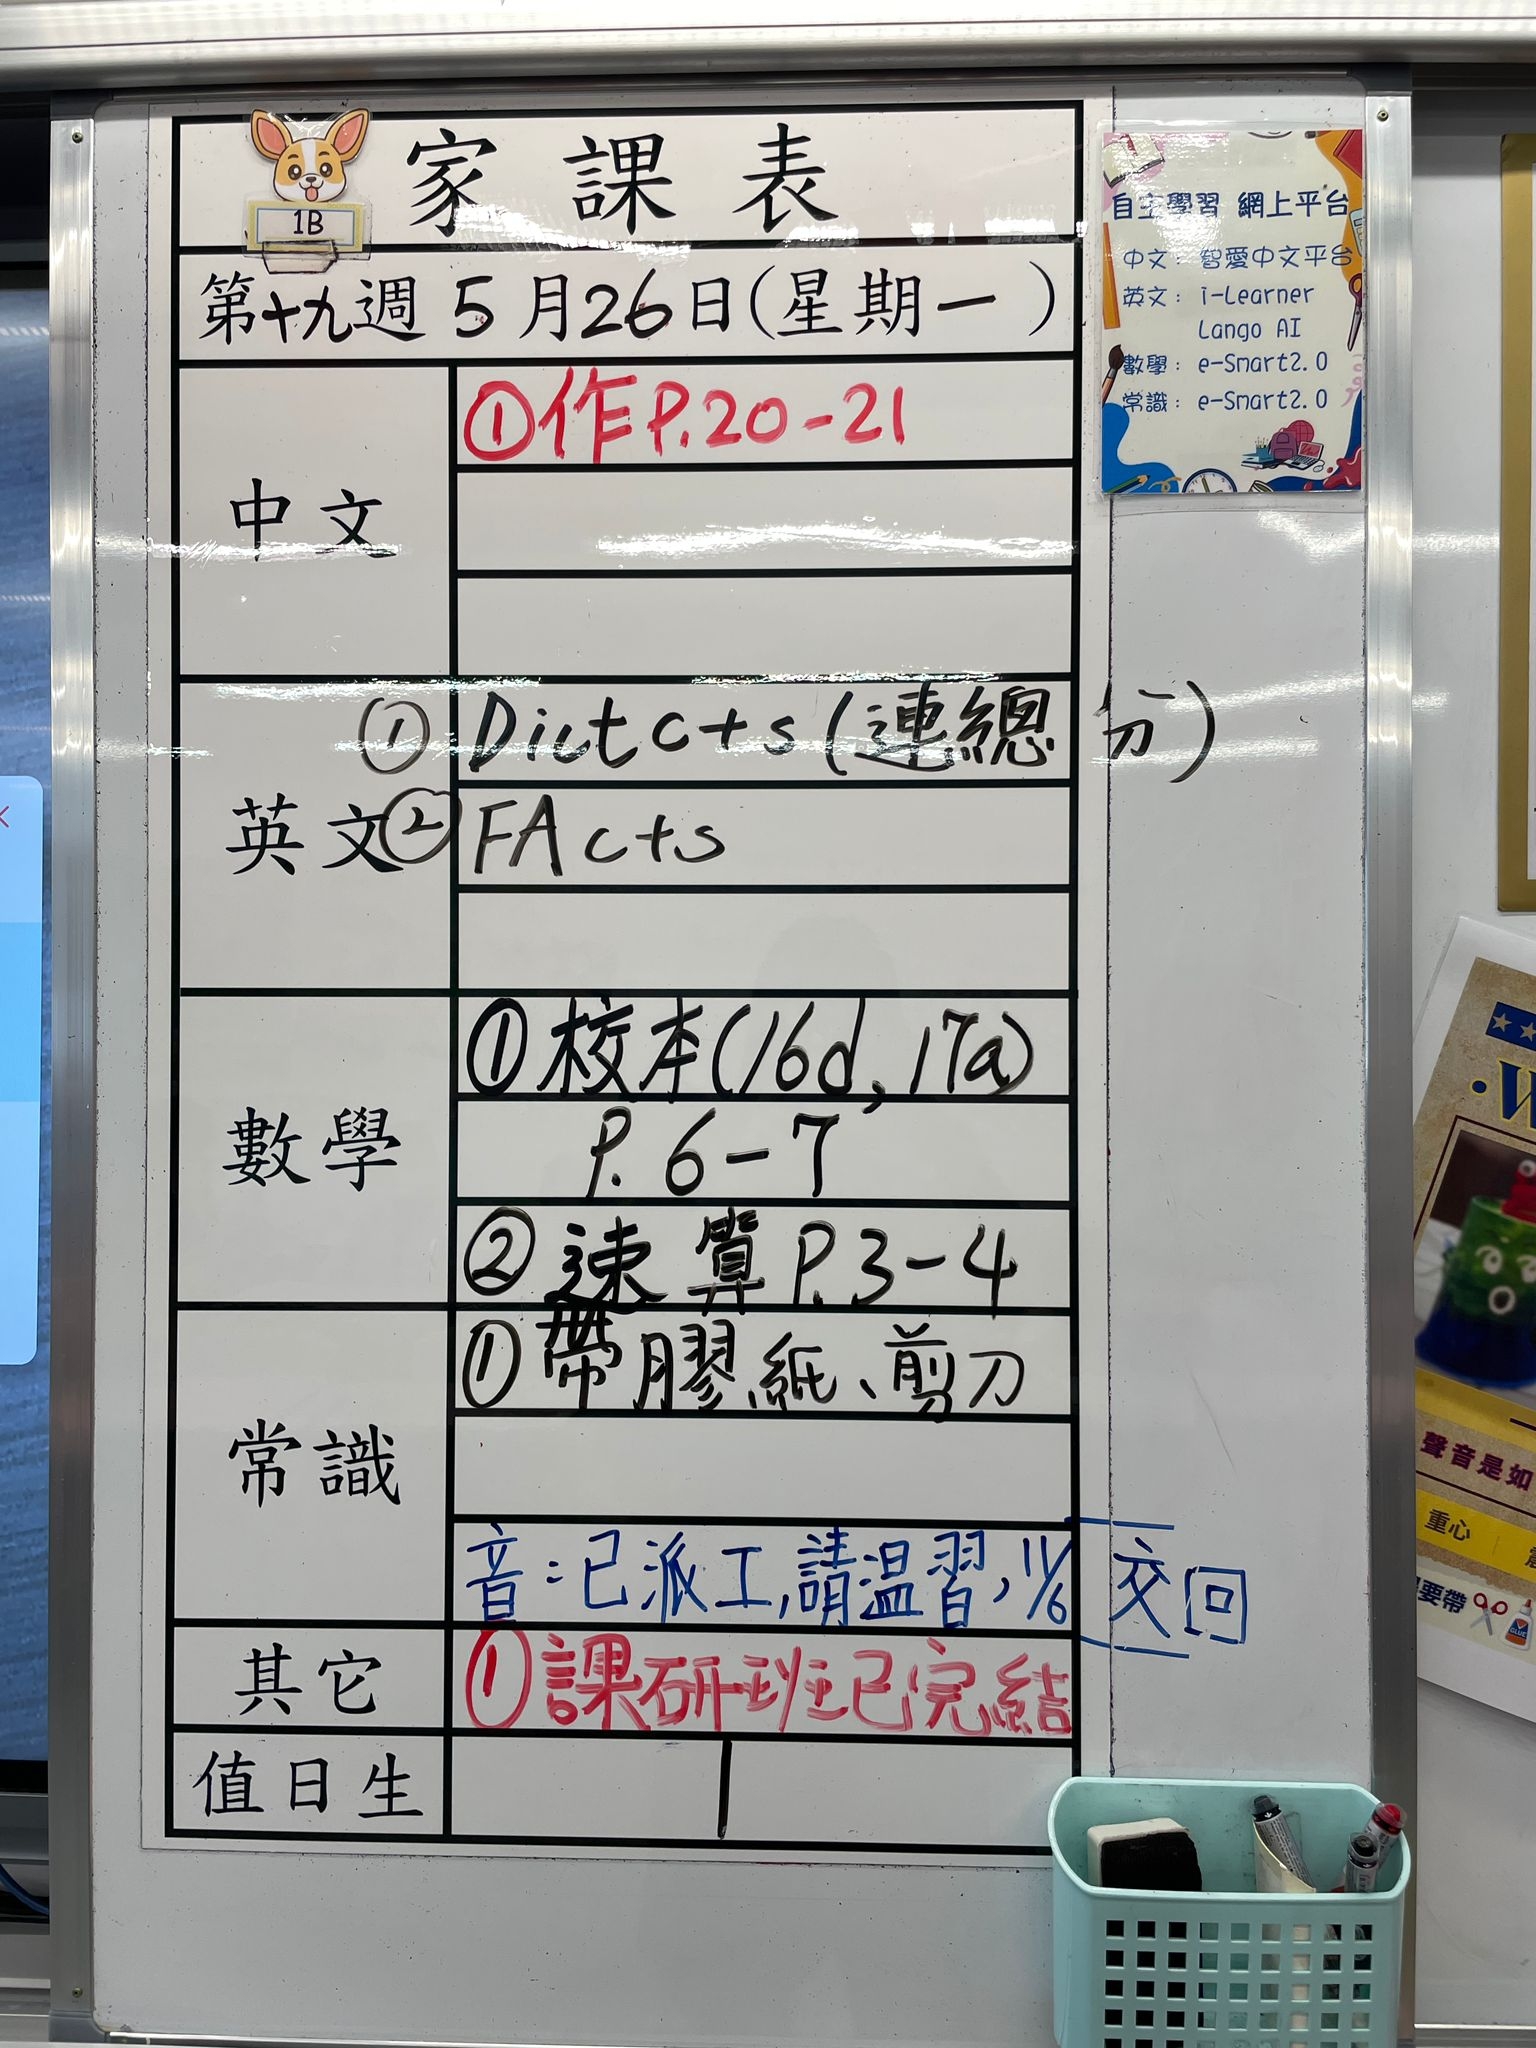 1B
家課表
第十九週 5月26日(星期一)
中文
①作P.20-21
英文
① Dict c+s (連總分)
② FA c+s
數學
①校本(16d, 17a)
P. 6-7
②速算 P.3-4
常識
①帶膠紙、剪刀
音:已派工,請温習,11/6 交回
其它
①課研班已完結
值日生
1
自主學習 網上平台
中文: 智愛中文平台
英文: i-Learner
Lango AI
數學: e-Smart2.0
常識: e-Smart2.0
聲音是如
重心
要帶
GLUE